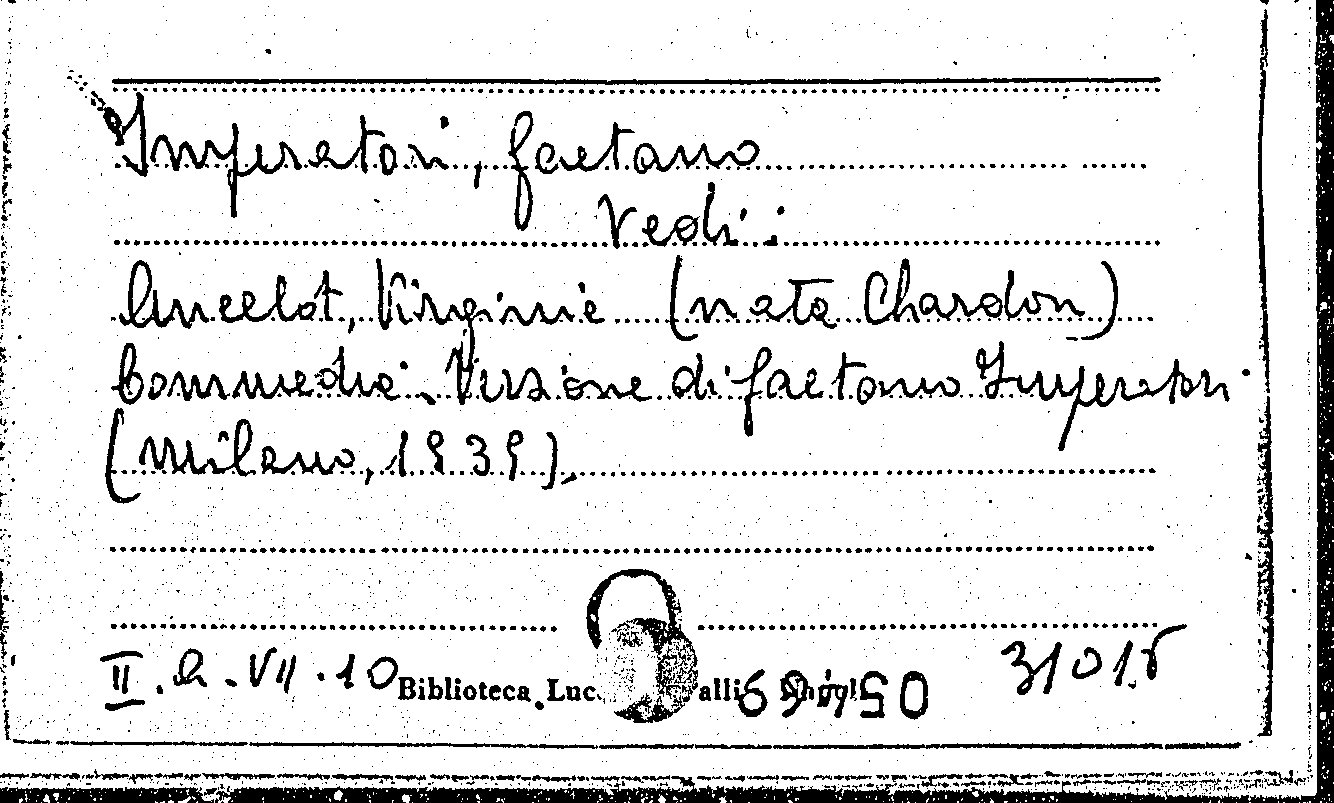 Imperatori, Gaetano
Vedi:
Ancelot, Virginie (nata Chardon)
Commedie. Versione di Gaetano Imperatori
(Milano, 1939).
II. a. VII. 10 Biblioteca Luc alli 31015